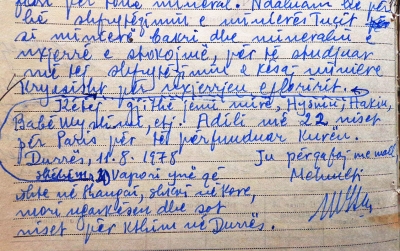 për tonë mineral. Ndaluam
në shfrytëzimin e minierës
si minierë bakri dhe mineralin e
nxjerrë e shpojmë, për të studjuar
më tej shfrytëzimin e kësaj miniere
kryesisht për nxjerrjen e floririt.
Këtej gjithë jemi mirë, Hysniu, Hakiu,
Babë Myslimi, etj. Adili më 22 niset
për Paris për të përfunduar kurën.
Durrës, 11.8.1978 Ju përgafoj me mall,
Vapori ynë që Mehmeti
ishte në Shangai, shkoi në Kore,
mori ngarkesën dhe sot
niset për kthim në Durrës.